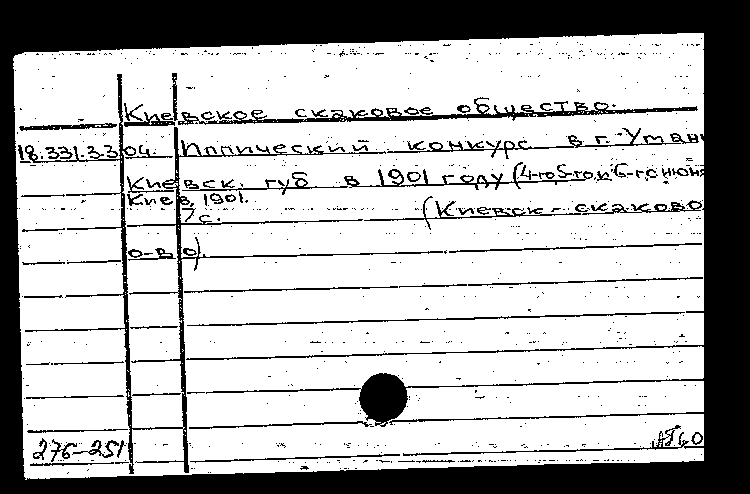 Киевское скаковое общество.
18.331.3.3 04. Иппический конкурс в г. Уман
Киевск. губ в 1901 году (4-го 5-го и 6-го июня
Киев, 1901.
7 с. (Киевск-скаково
о-во).
276-251